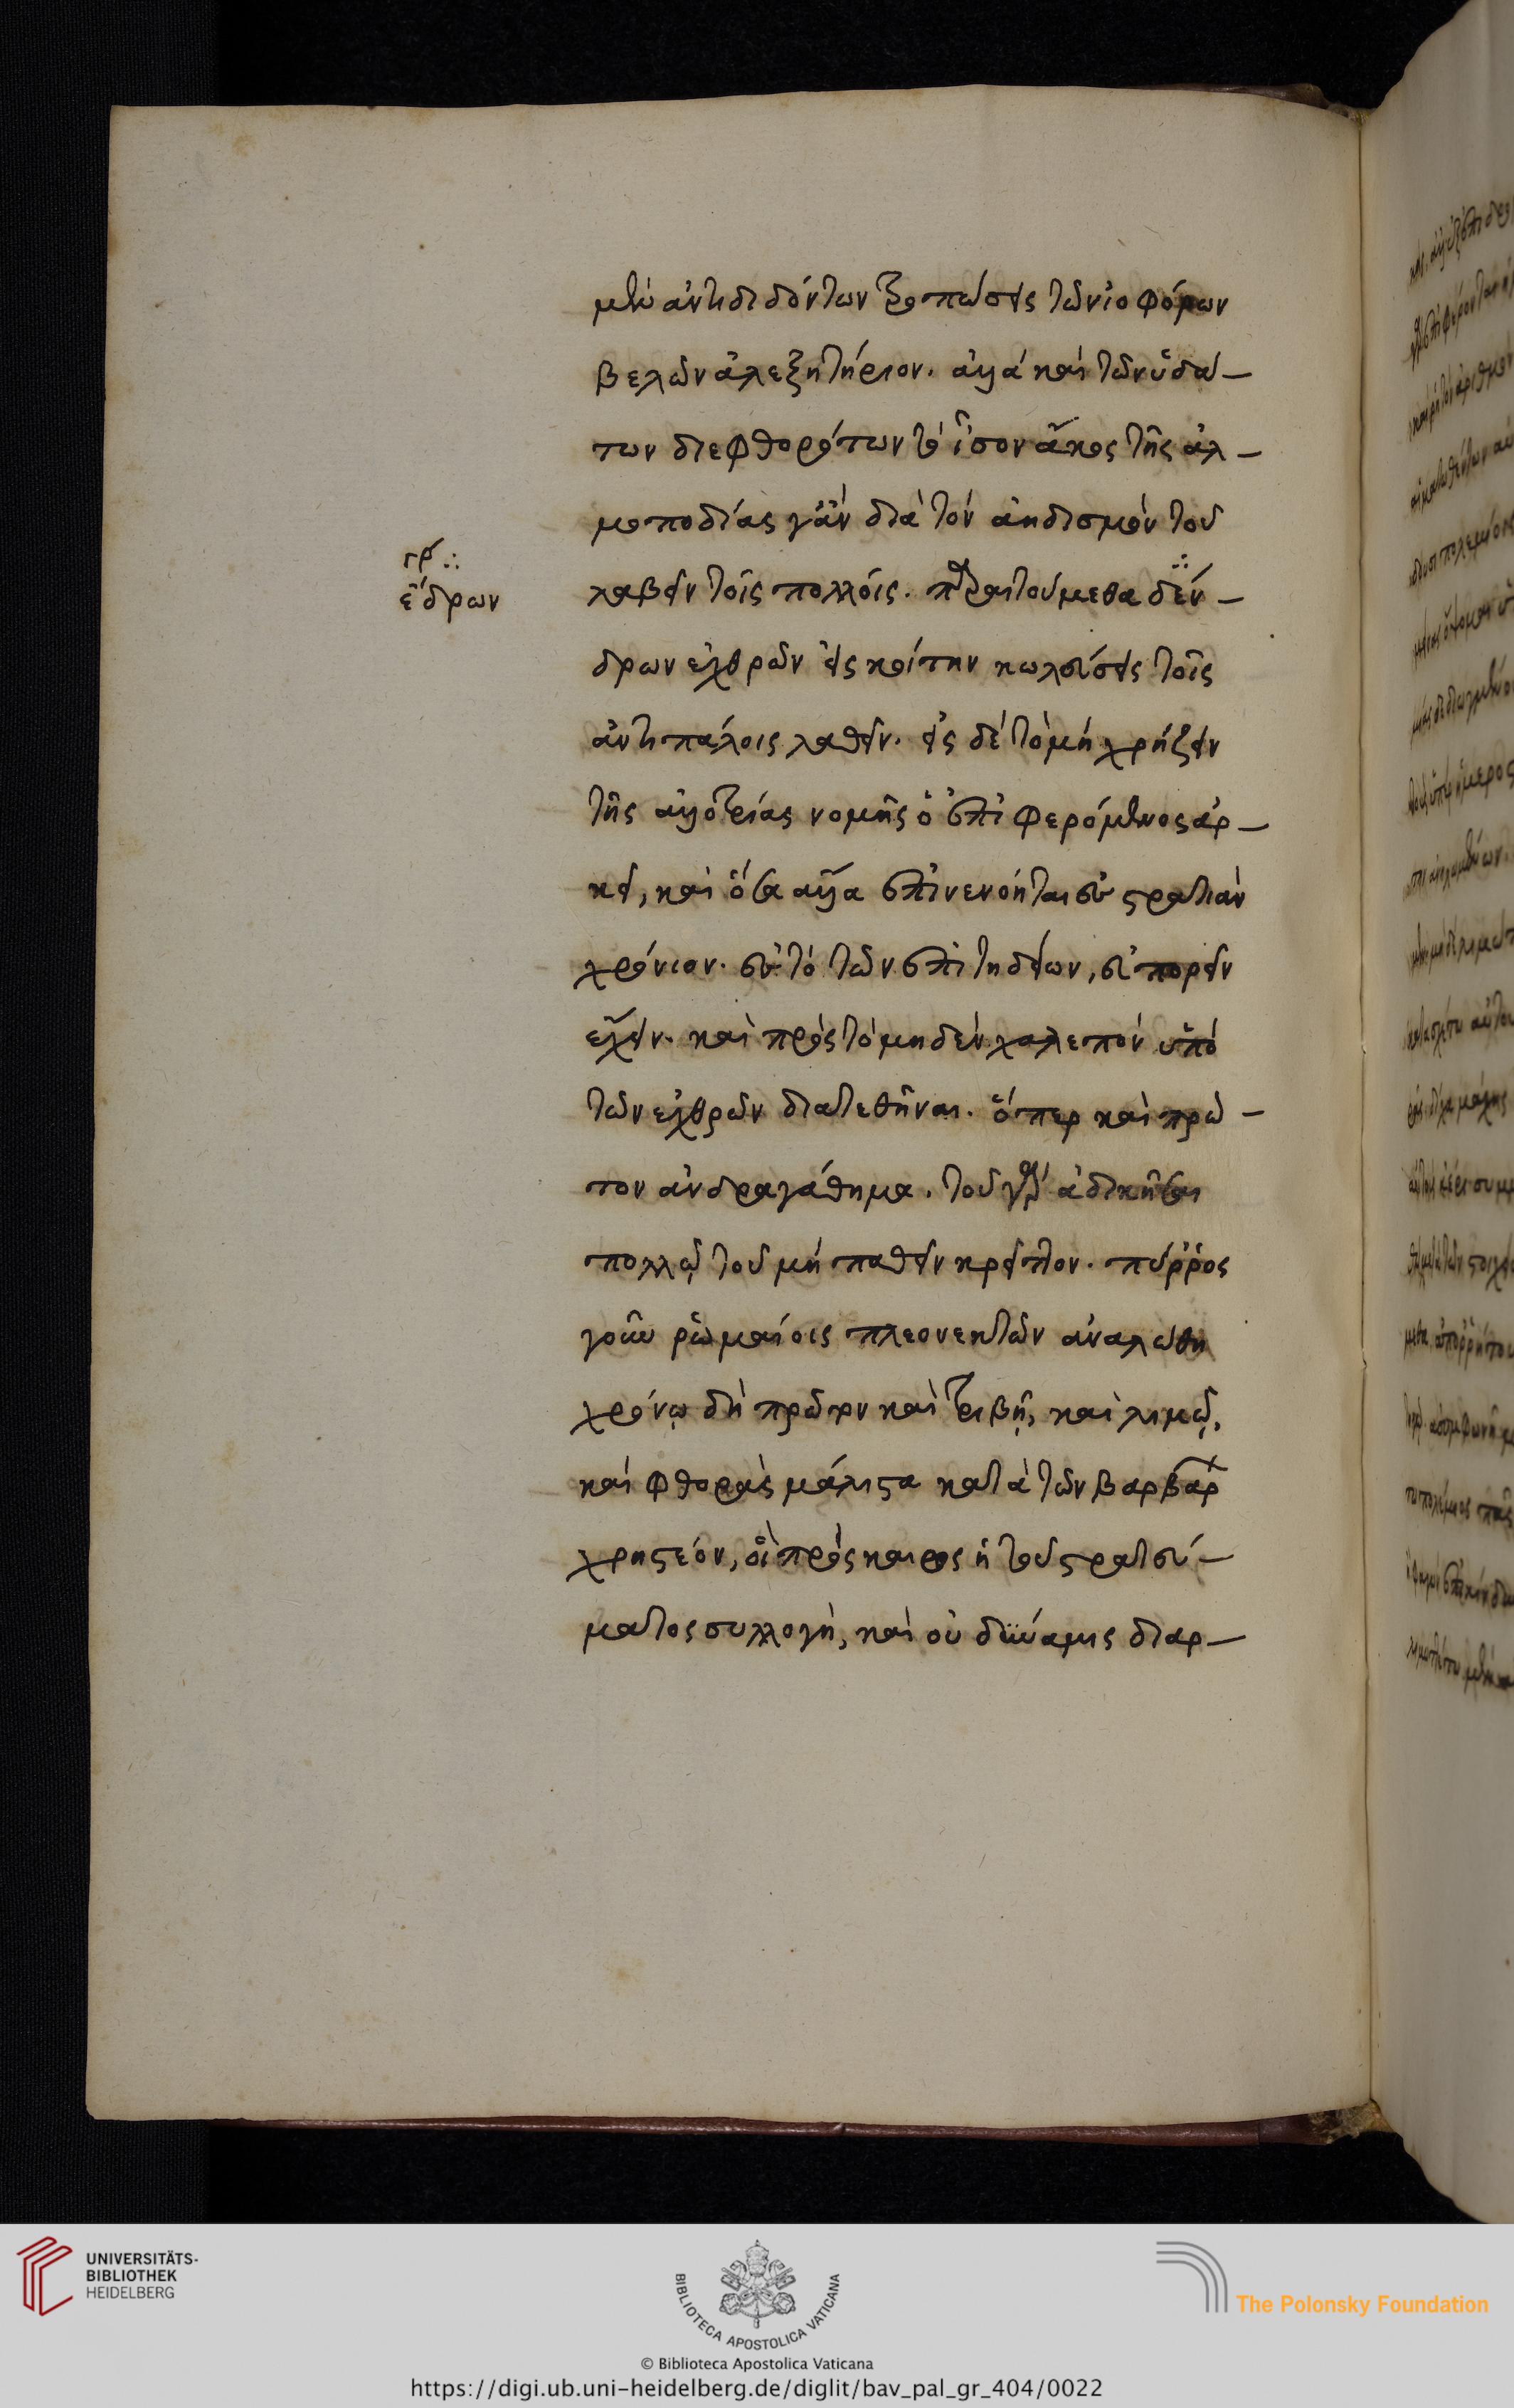 μὲν ἀντιδιδόντων τροπώσεις τῶν ἰοφόρων
βελῶν ἀλεξητήριον. ἀλλὰ καὶ τῶν ὑδά—
των διεφθορότων τὸ ἴσον ἄκος τῆς ἁλ—
μοποδίας γἂν διὰ τὸν ἀηδισμὸν τοῦ
γρ.:
ἕδρων
λαβεῖν τοῖς πολλοῖς. παραιτούμεθα δέν—
δρων ἐχθρῶν εἰς κοίτην κωλύσεις τοῖς
ἀντιπάλοις λαθεῖν. εἰς δὲ τὸ μὴ χρήζειν
τῆς ἀλλοτρίας νομῆς ὁ ἐπιφερόμενος ἀρ—
κεῖ, καὶ ὅσα ἄλλα ἐπινενόηται εἰς στρατιὰν
χρόνιον. εὖ τὸ τῶν ἐπιτηδείων, εὐπορεῖν
ἔχειν. καὶ πρὸς τὸ μηδὲν χαλεπὸν ὑπὸ
τῶν ἐχθρῶν διατεθῆναι. ὅπερ καὶ πρῶ—
τον ἀνδραγάθημα. τοῦ γὰρ ἀδικῆσαι
πολλῷ τοῦ μὴ παθεῖν κρεῖττον. πύρρος
γοῦν ῥωμαίοις πλεονεκτῶν ἀναλώθη
χρόνῳ δὴ πρῶτον καὶ τριβῇ, καὶ λιμῷ,
καὶ φθορὰς μάλιστα κατὰ τῶν βαρβάρ
χρηστέον, οἷ πρόσκαιρος ἡ τοῦ στρατεύ—
ματος συλλογὴ, καὶ οὐ δύναμις διαρ—
UNIVERSITÄTS-
BIBLIOTHEK
HEIDELBERG
BIBLIOTECA APOSTOLICA VATICANA
The Polonsky Foundation
© Biblioteca Apostolica Vaticana
https://digi.ub.uni-heidelberg.de/diglit/bav_pal_gr_404/0022